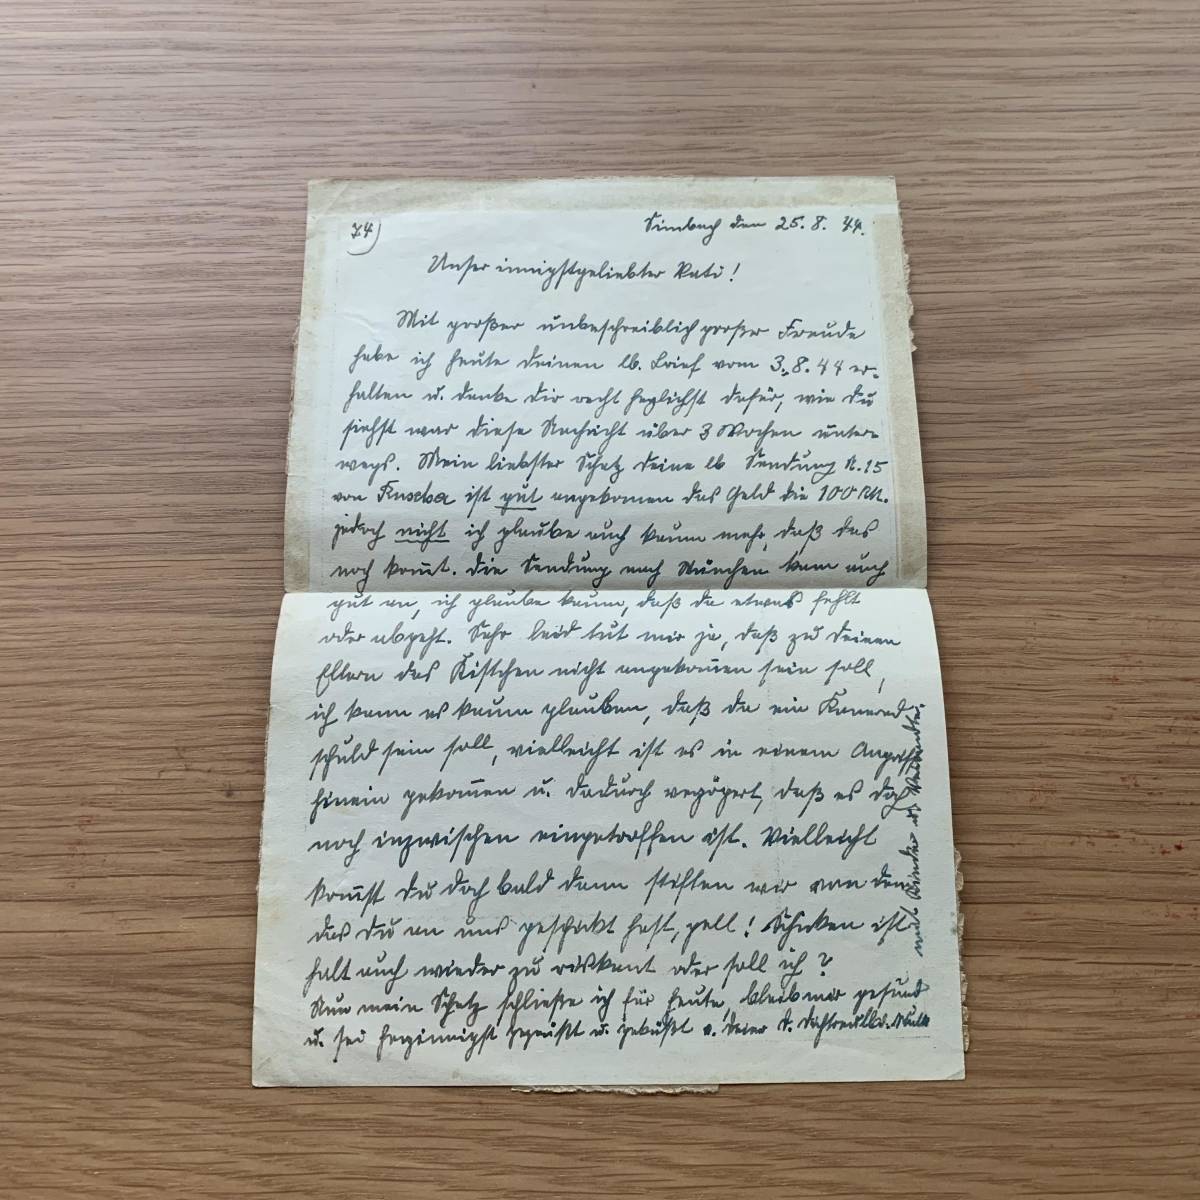 74)
Simbach den 25.8.44.
Unser innigstgeliebter Vati!
Mit großer unbeschreiblich großer Freude
habe ich heute deinen lb. Brief vom 3.8.44 er-
halten u. danke dir recht herzlichst dafür, wie du
siehst war diese Nachricht über 3 Wochen unter-
wegs. Mein liebster Schatz deine lb Sendung N. 15
von ist gut angekomen das Geld die 100 RM.
jedoch nicht ich glaube auch kaum mehr, daß das
noch komt. Die Sendung nach München kam auch
gut an, ich glaube kaum, daß da etwas fehlt
oder abgeht. Sehr leid tut mir ja, daß zu deinen
Eltern das Kistchen nicht angekommen sein soll,
ich kann es kaum glauben, daß da ein Kamerad
schuld sein soll, vielleicht ist es in einem Angriff
hinein gekommen u. dadurch verzögert, daß es doch
noch inzwischen eingetroffen ist. Vielleicht
kommst du doch bald dann stiften wir von dem
das du an uns geschickt hast, gell! Schicken ist
halt auch wieder zu riskant oder soll ich?
Nun mein Schatz schließe ich für heute, bleib mir gesund
u. sei herzinnigst gegrüßt u. geküßt v. deiner
und Kinder u. Verwandte.